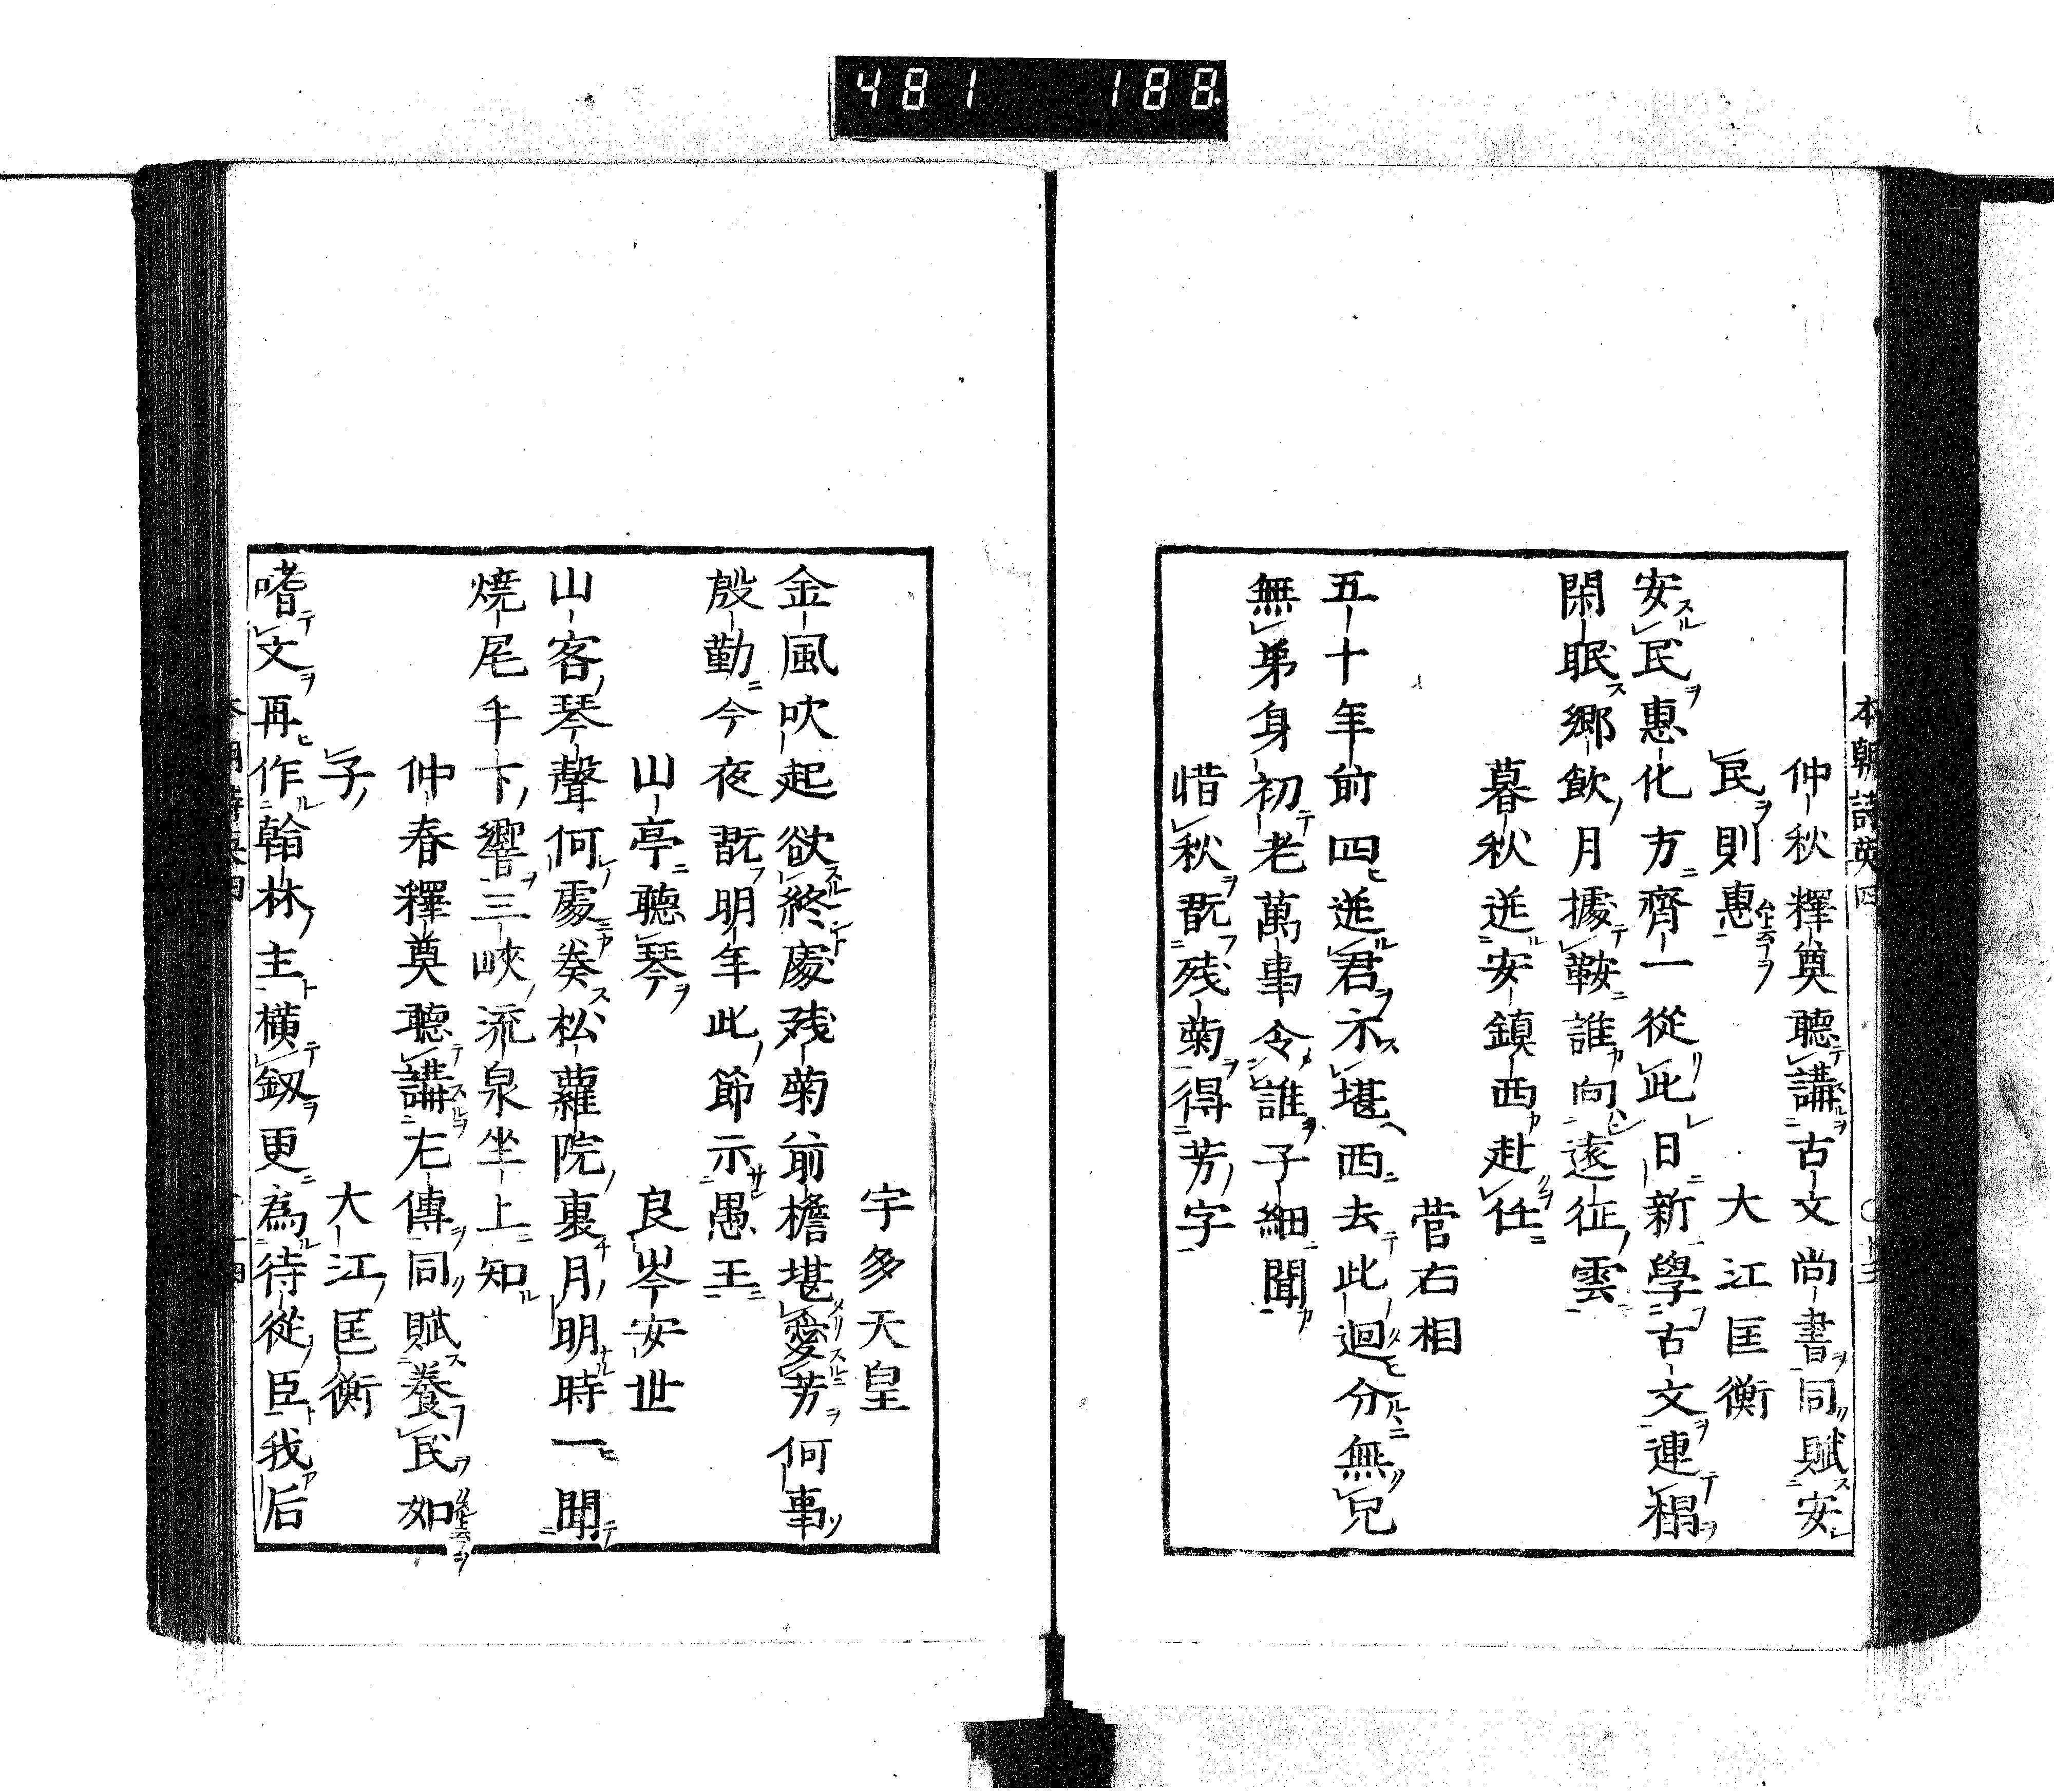 481 188
本朝詩英四
仲秋釋奠聽講古文尚書同賦安
民則惠
大江匡衡
安民惠化方齊一從此日新學古文連榻
閑眠郷飲月據鞍誰向遠征雲
暮秋送安鎮西赴任
菅右相
五十年前四送君不堪西去此迴分無兄
無弟身初老萬事令誰子細聞
惜秋翫残菊得芳字
宇多天皇
金風吹起欲終處残菊前檐堪愛芳何事
殷勤今夜翫明年此節示愚王
山亭聽琴
良岑安世
山客琴聲何處奏松蘿院裏月明時一聞
燒尾手下響三峽流泉坐上知
仲春釋奠聽講左傳同賦養民如
子
大江匡衡
嗜文再作翰林主横釼更為待從臣我后